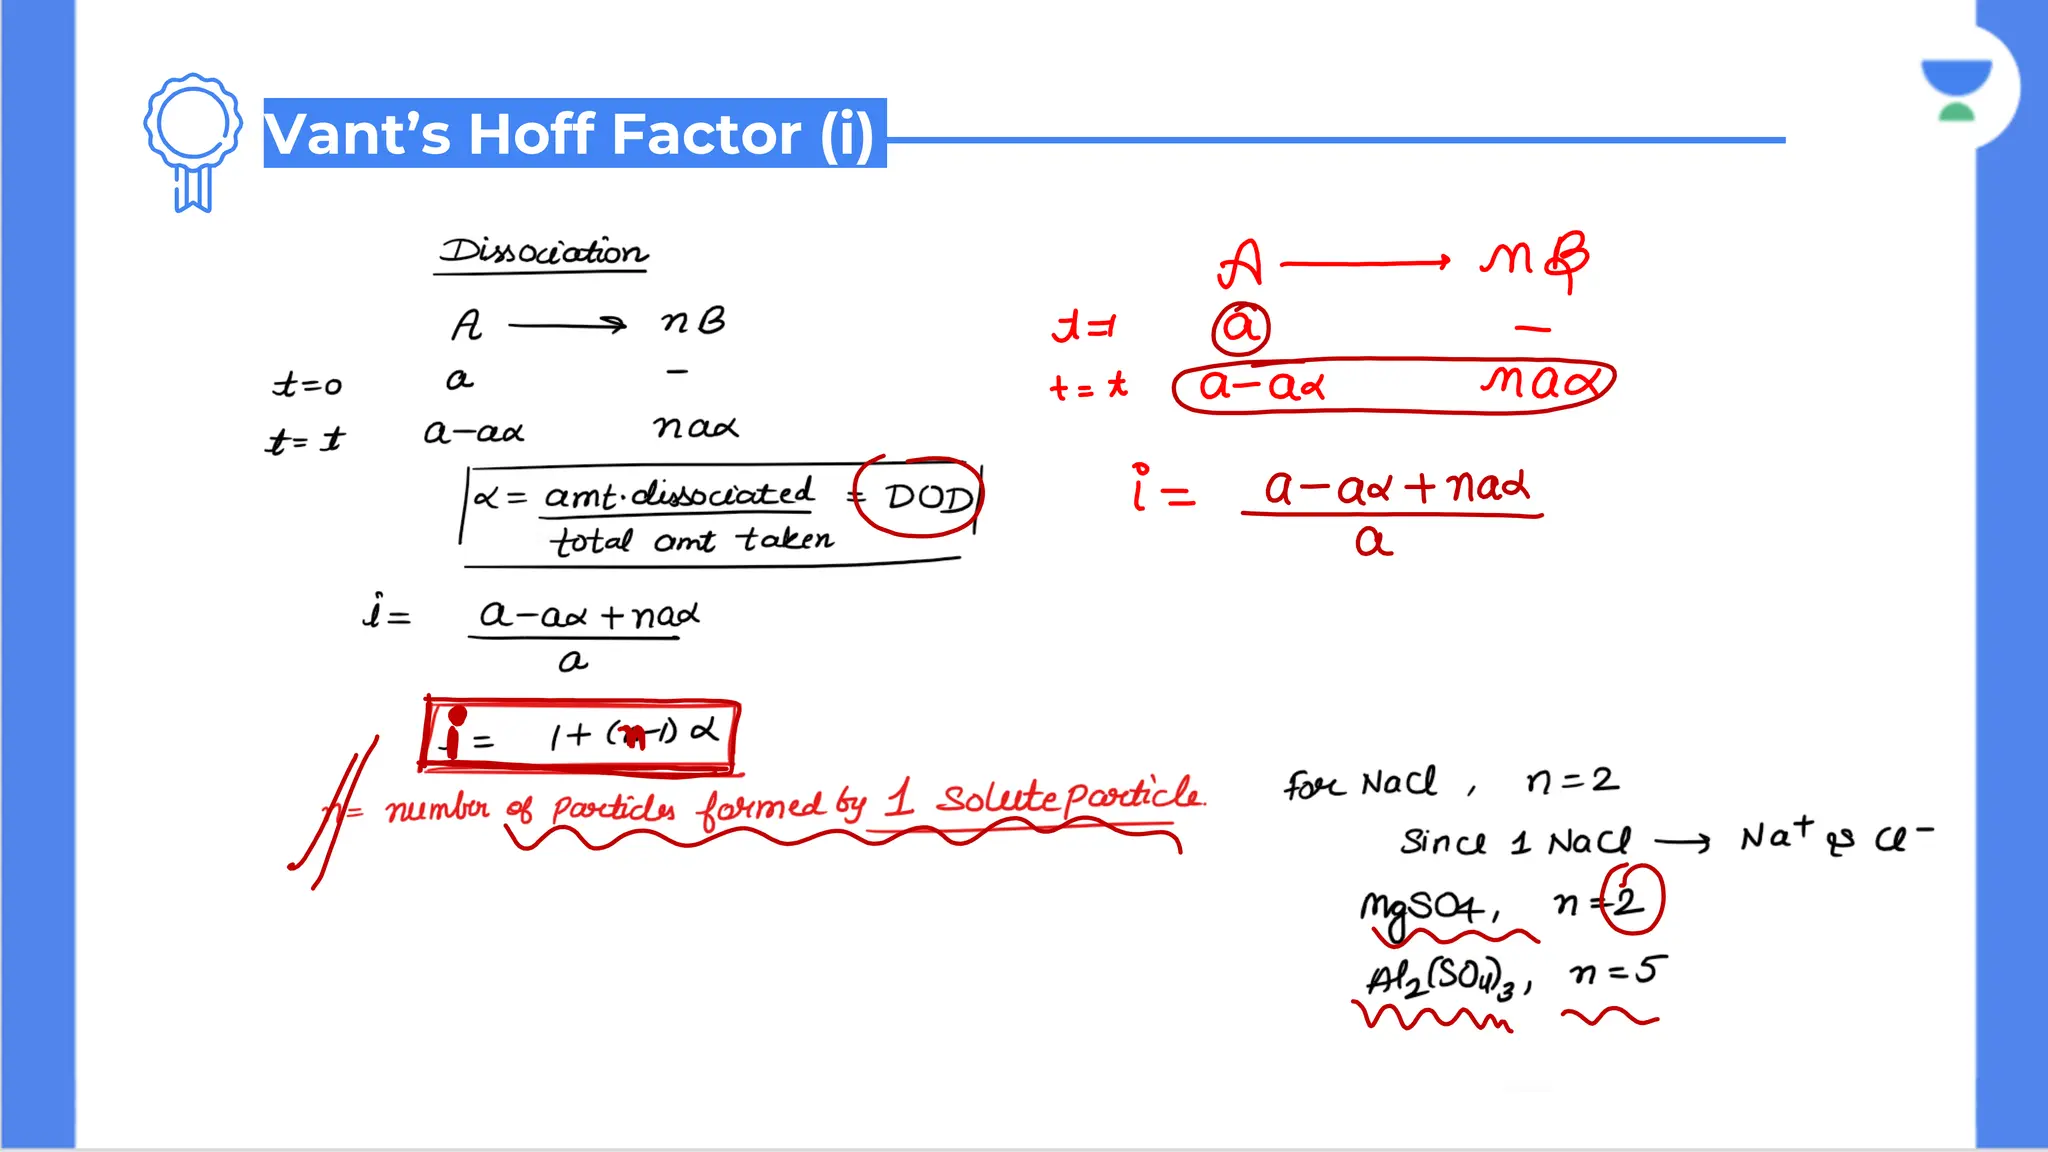 Vant's Hoff Factor (i)
Dissociation
A ⟶ nB
t=0 a –
t=t a-aα naα
α = amt. dissociated / total amt taken = DOD
i = a-aα+naα / a
i = 1+(n-1)α
n= number of particles formed by 1 solute particle.
A ⟶ nB
t= a –
t=t a-aα naα
i = a-aα+naα / a
for NaCl, n=2
Since 1 NaCl ⟶ Na⁺ & Cl⁻
MgSO4, n=2
Al₂(SO₄)₃, n=5